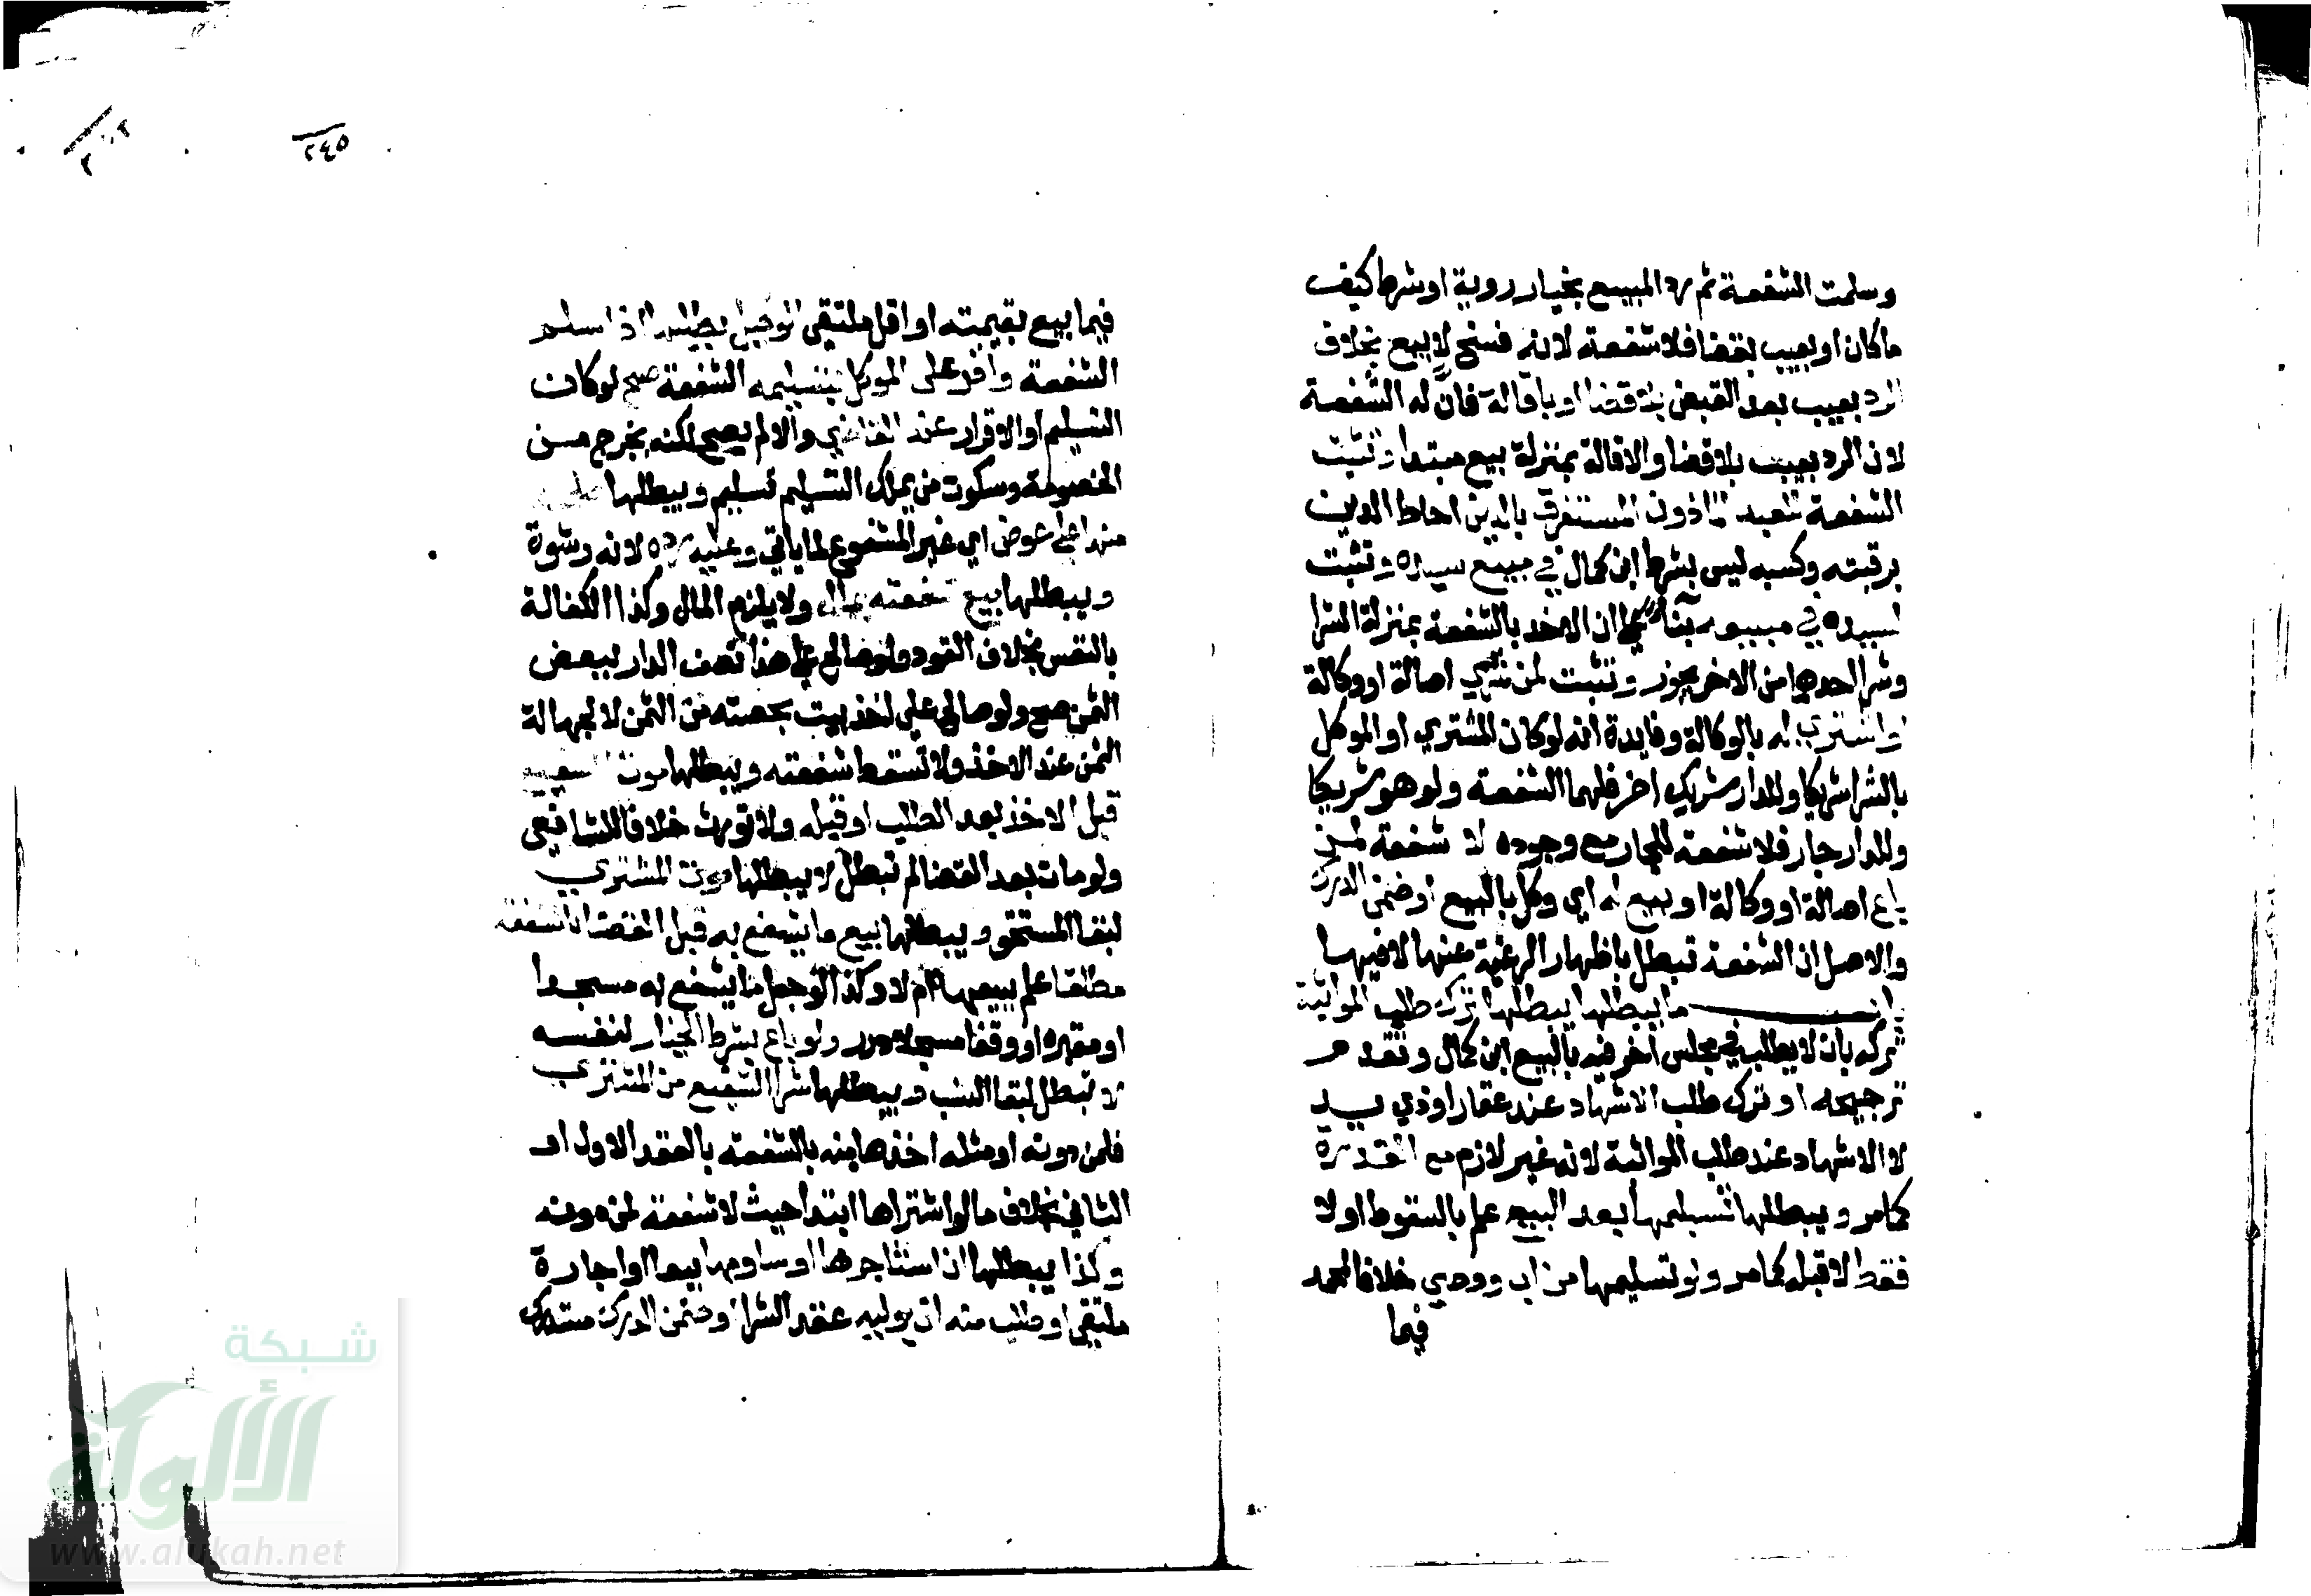 وسلمت الشفعة ثم رد المبيع بخيار روية او شرط كيف
ما كان او بعيب بقضا فلا شفعة لانه فسخ لا بيع بخلاف
الرد بعيب بعد القبض بلا قضا او باقالة فان له الشفعة
لان الرد بعيب بلا قضا والاقالة بمنزلة بيع مبتدا وتثبت
الشفعة للعبد الماذون المستغرق بالدين احاط الدين
برقبته وكسبه ليس بشرط ابن كمال في مبيع سيده وتثبت
لسيده في مبيعه بنا على ان الاخذ بالشفعة بمنزلة الشرا
وشرا احدهما من الاخر يجوز وتثبت لمن شري اصالة او وكالة
او اشتري له بالوكالة وفايدة انه لو كان المشتري او الموكل
بالشرا شريكا وللدار شريك اخر فلهما الشفعة ولو هو شريكا
وللدار جار فلا شفعة للجار مع وجوده لا شفعة لمن
باع اصالة او وكالة او بيع له اي وكل بالبيع او ضمن الدرك
والاصل ان الشفعة تبطل باظهار الرغبة عنها لا فيها
باب ما يبطلها يبطلها ترك طلب المواثبة
تركه بان لا يطلب في مجلس اخر فيه بالبيع ابن كمال وتقدم
ترجيحه او ترك طلب الاشهاد عند عقار او ذي يد
لا الاشهاد عند طلب المواثبة لانه غير لازم مع القدرة
كما مر ويبطلها تسليمها بعد البيع علم بالسقوط او لا
فقط لا قبله كما مر ولو تسليمها من اب ووصي خلافا لمحمد
فيما
٢٤٥
فيما بيع بقيمته او اقل ملتقى الوكيل بطلبها اذا سلم
الشفعة واقر على الموكل بتسليمه الشفعة صح لو كان
التسليم او الاقرار عند القاضي والا لم يصح لكنه يخرج من
الخصومة وسكوت من يملك التسليم تسليم ويبطلها صلحه
منها على عوض اي غير المشفوع لما ياتي وعليه رده لانه رشوة
ويبطلها بيع شفعته بمال ولا يلزم المال وكذا الكفالة
بالنفس بخلاف القود ولو صالح على اخذ نصف الدار ببعض
الثمن صح ولو صالح على اخذ بيت بحصته من الثمن لا لجهالة
الثمن عند الاخذ ولا تسقط شفعته ويبطلها موت الشفيع
قبل الاخذ بعد الطلب او قبله ولا تورث خلافا للشافعي
ولو مات بعد القضا لم تبطل لا يبطلها موت المشتري
لبقا المستحق ويبطلها بيع ما يشفع به قبل القضا بالشفعة
مطلقا علم ببيعها ام لا وكذا لو جعل ما يشفع به مسجدا
او مقبرة او وقفا مسجلا درر ولو باع بشرط الخيار لنفسه
لا تبطل لبقا السبب ويبطلها شرا الشفيع من المشتري
فلمن دونه او مثله اخذها منه بالشفعة بالعقد الاول او
الثاني بخلاف ما لو اشتراها ابتدا حيث لا شفعة لمن دونه
وكذا يبطلها ان استاجرها او ساومها بيعا او اجارة
ملتقى او طلب منه ان يوليه عقد الشرا او ضمن الدرك مستدرك
شبكة
الألوكة
www.alukah.net